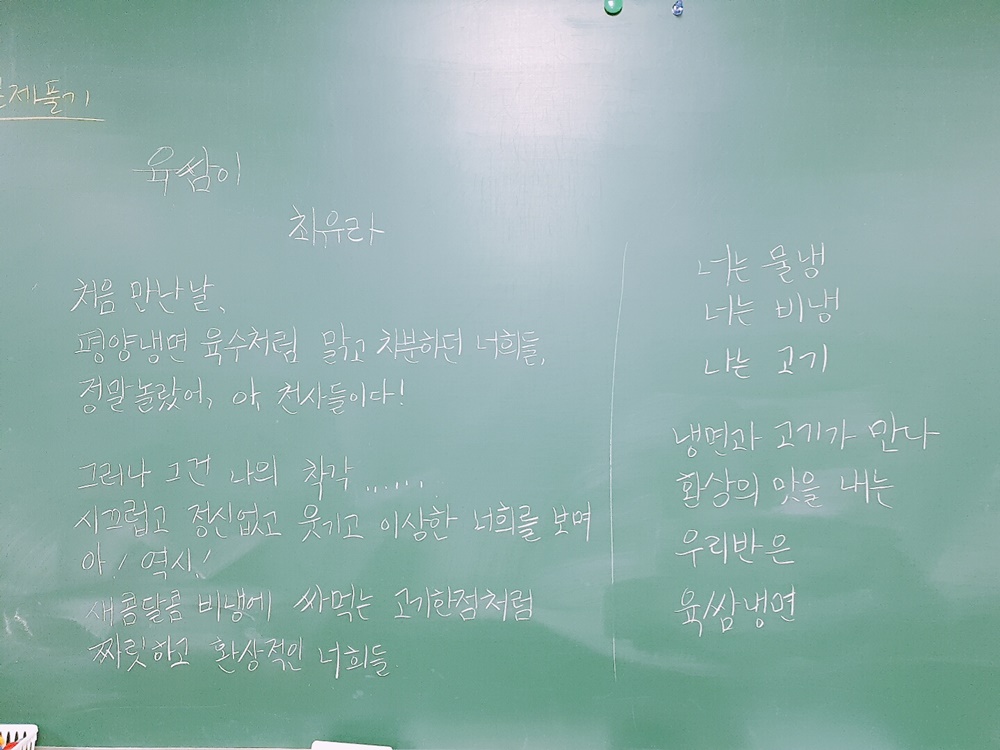 문제풀기
육쌈이
최유라
처음 만난날,
평양냉면 육수처럼 맑고 차분하던 너희들,
정말놀랐어, 아, 천사들이다!
그러나 그건 나의 착각.......
시끄럽고 정신없고 웃기고 이상한 너희를 보며
아! 역시!
새콤달콤 비냉에 싸먹는 고기한점처럼
짜릿하고 환상적인 너희들.
너는 물냉
너는 비냉
나는 고기
냉면과 고기가 만나
환상의 맛을 내는
우리반은
육쌈냉면